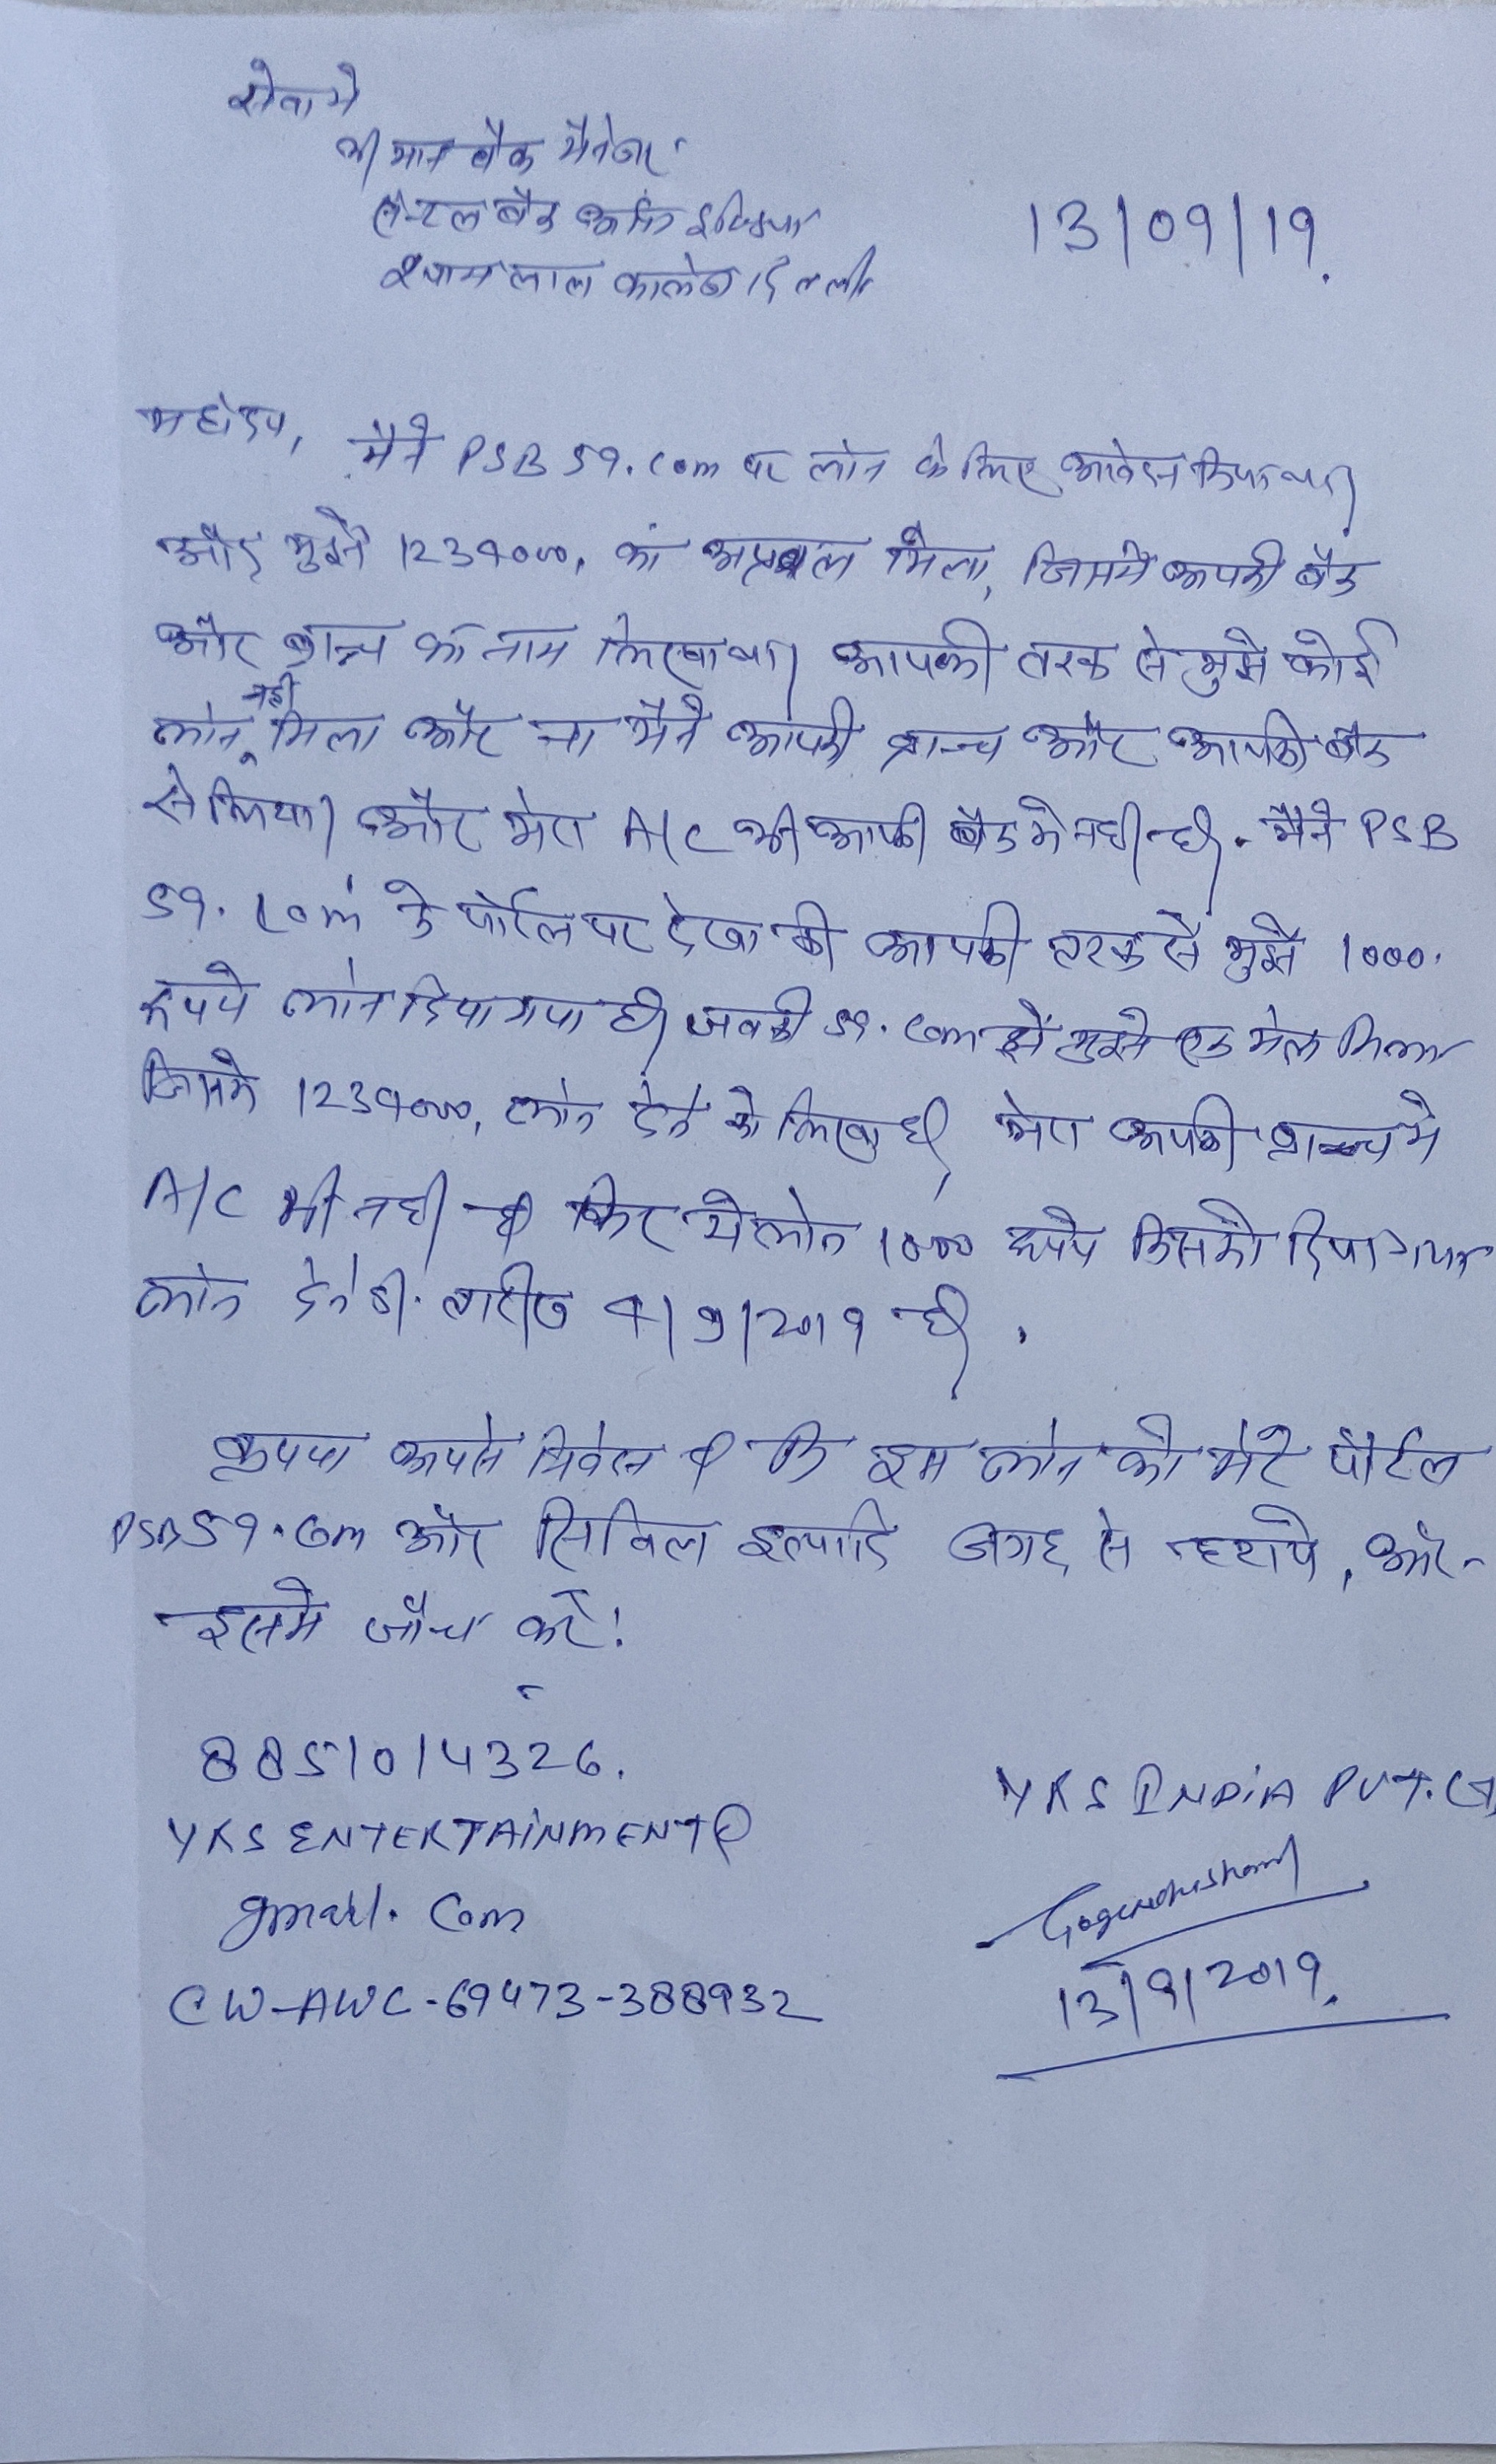 सेवा मे
श्री मान बैंक मैनेजर
सेन्ट्रल बैंक ऑफ इण्डिया
13/09/19.
श्याम लाल कालेज दिल्ली
महोदय,
मैने PSB 59.com पर लोन के लिए आवेदन किया था।
और मुझे 1239000, का अप्रूवल मिला, जिसमे आपकी बैंक
और ब्रान्च का नाम लिखा था। आपकी तरफ से मुझे कोई
लोन नही मिला और ना मैने आपकी ब्रान्च और आपकी बैंक
से लिया। और मेरा A/C भी आपकी बैंक मे नही है. मैने PSB
59.com के पोर्टल पर देखा की आपकी तरफ से मुझे 1000.
रूपये लोन दिया गया है। जबकी 59.com से मुझे एक मेल मिला
जिसमे 1239000, लोन देने को लिखा है, मेरा आपकी ब्रान्च मे
A/C भी नही है फिर ये लोन 1000 रूपये किसको दिया गया
लोन देने की तारीख 4/9/2019 है.
कृपया आपसे निवेदन है कि इस लोन को मेरे पोर्टल
PSB59.com और सिविल इत्यादि जगह से हटाये, और
इसमे जाँच करे!
8851014326.
YKS INDIA PVT.
YKS ENTERTAINMENT@
gmail. Com
13/9/2019.
CW-AWC-69473-388932